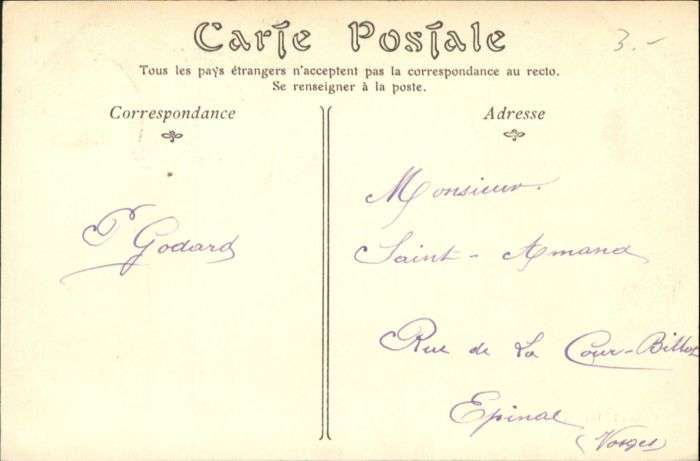 Carte Postale
3.-
Tous les pays étrangers n'acceptent pas la correspondance au recto.
Se renseigner à la poste.
Correspondance
Adresse
P Godard
Monsieur.
Saint-Amand
Rue de La Cour-Billot
Epinal
(Vosges)